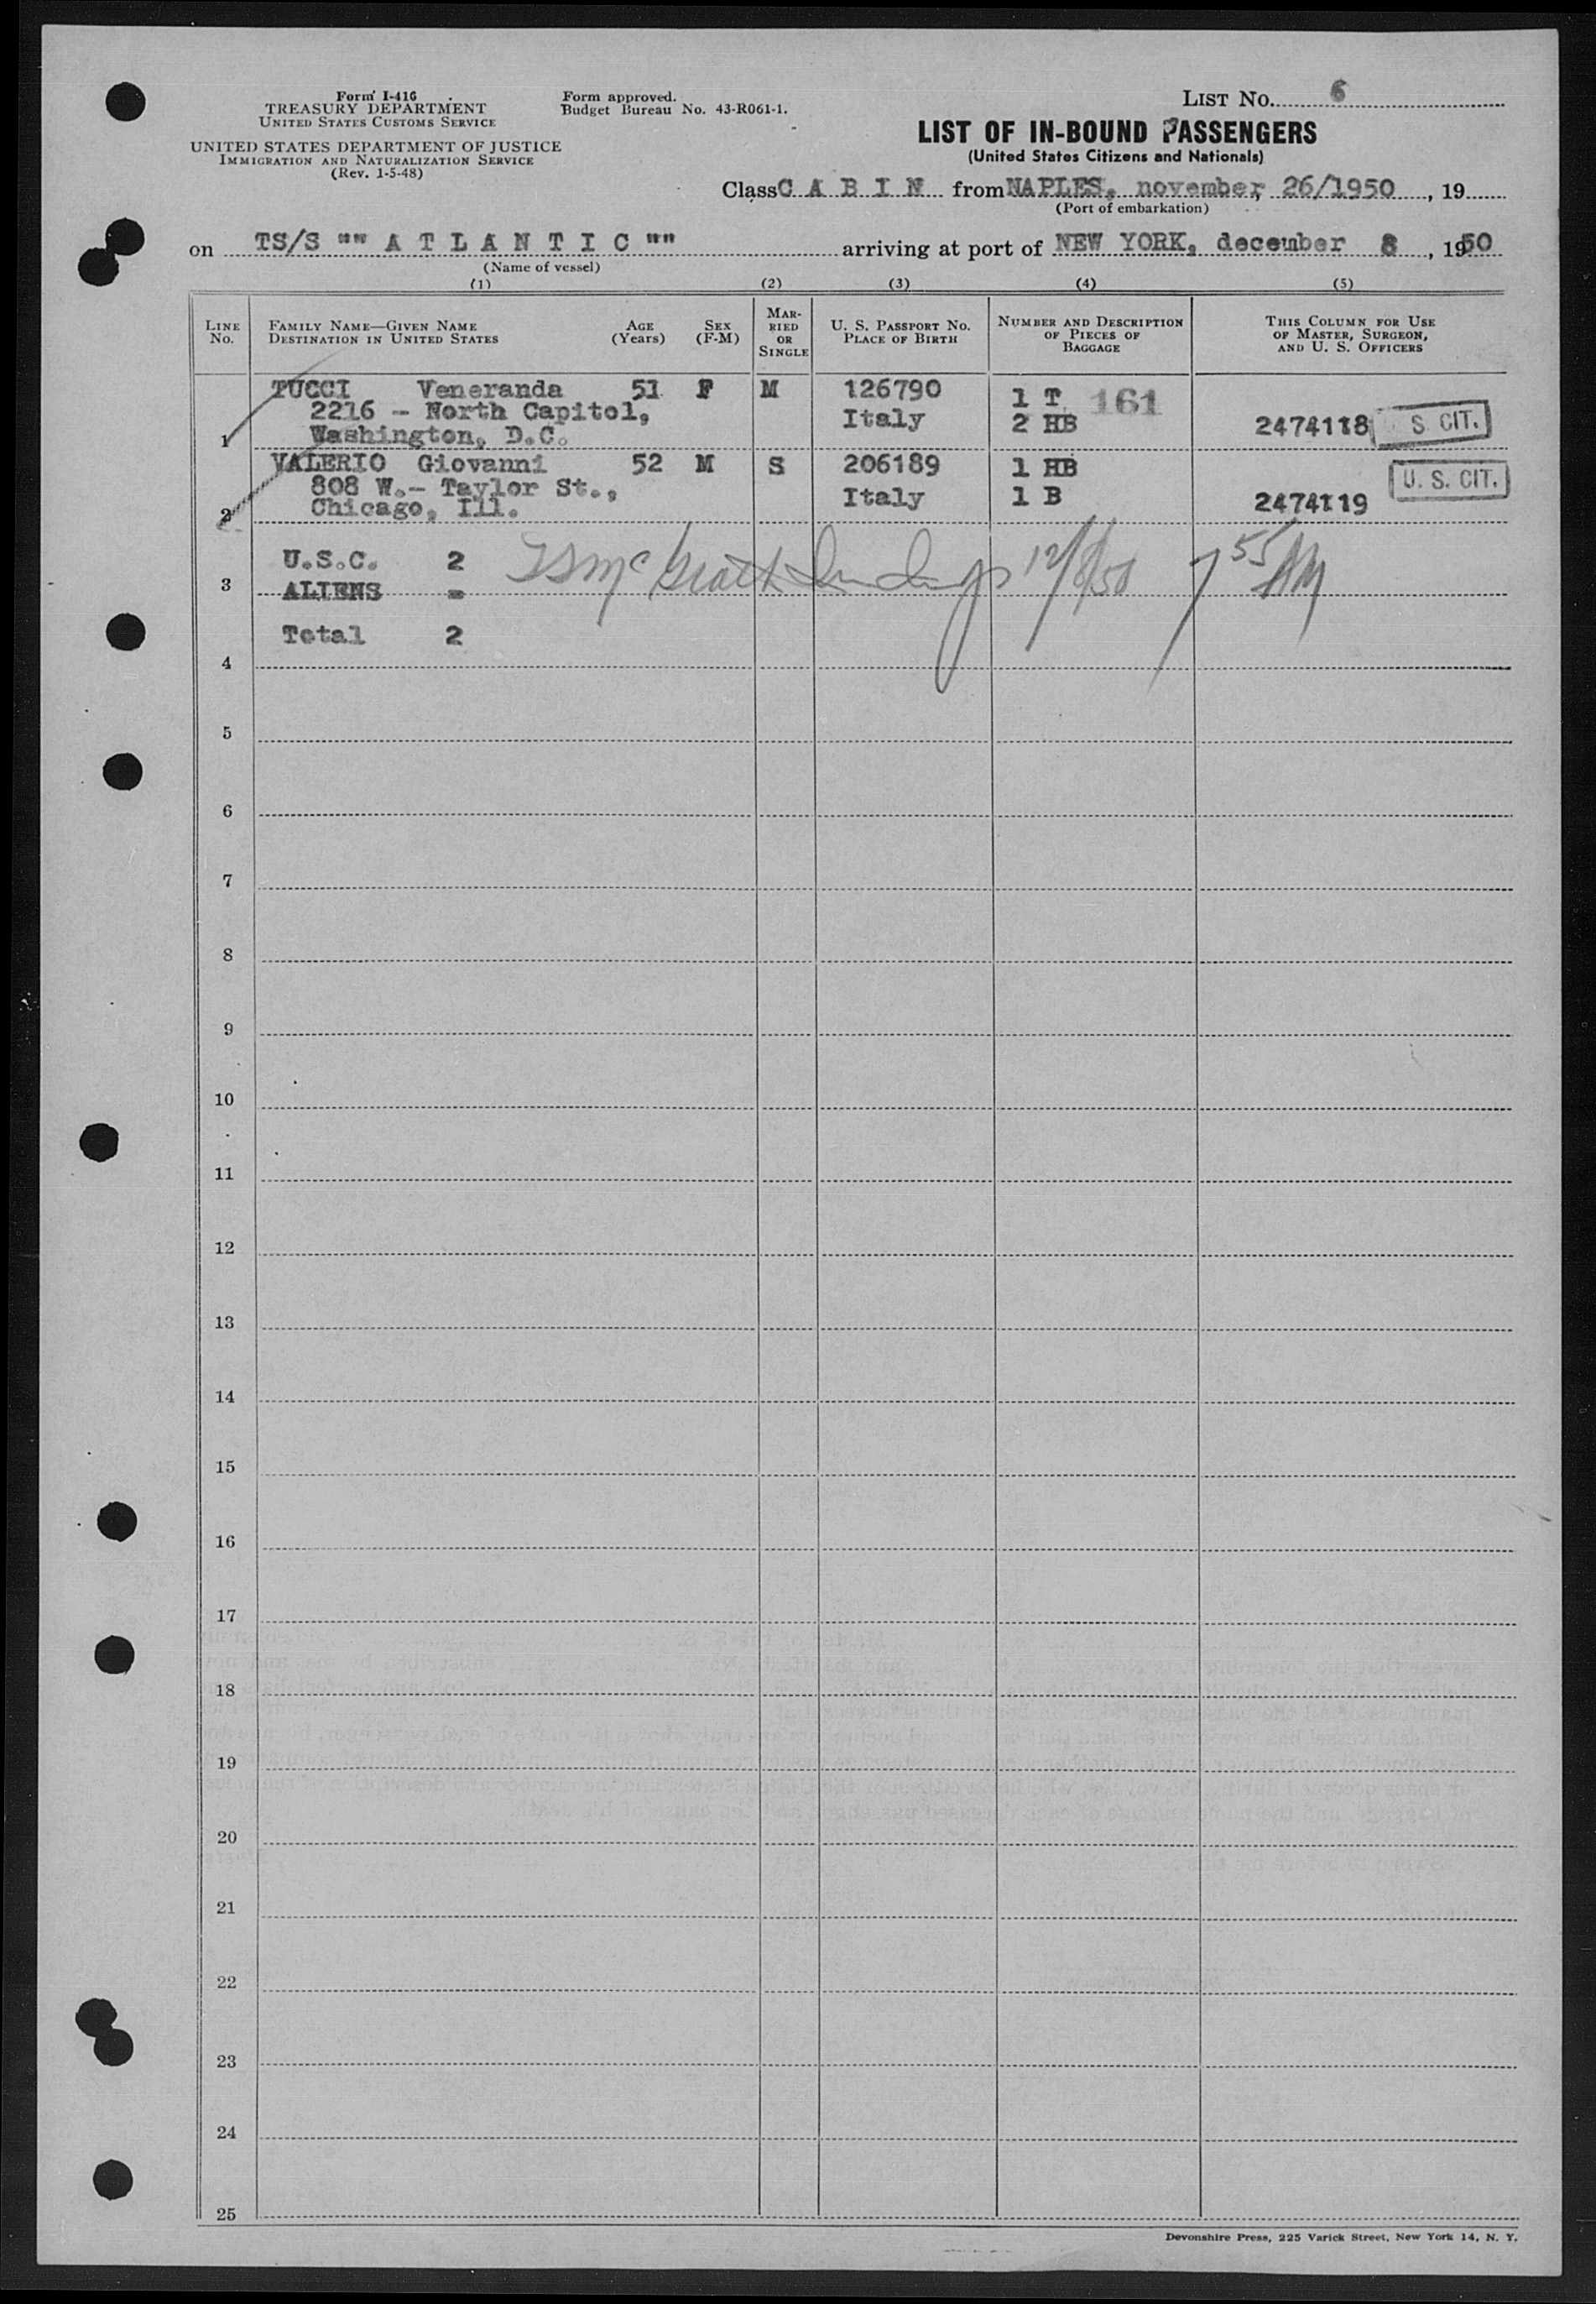 Form I-416
TREASURY DEPARTMENT
UNITED STATES CUSTOMS SERVICE
UNITED STATES DEPARTMENT OF JUSTICE
IMMIGRATION AND NATURALIZATION SERVICE
(Rev. 1-5-48)
Form approved.
Budget Bureau No. 43-R061-1.
LIST No. 6
LIST OF IN-BOUND PASSENGERS
(United States Citizens and Nationals)
Class C A B I N from NAPLES, november, 26/1950, 19
(Port of embarkation)
on TS/S "" A T L A N T I C "" arriving at port of NEW YORK, december 8, 1950
(Name of vessel)
(1) (2) (3) (4) (5)
LINE No. FAMILY NAME—GIVEN NAME DESTINATION IN UNITED STATES AGE (Years) SEX (F-M) MARRIED OR SINGLE U. S. PASSPORT NO. PLACE OF BIRTH NUMBER AND DESCRIPTION OF PIECES OF BAGGAGE THIS COLUMN FOR USE OF MASTER, SURGEON, AND U. S. OFFICERS
TUCCI Veneranda 51 F M 126790 1 T 161
2216 - North Capitol, Italy 2 HB 2474118 S. CIT.
1 Washington, D.C.
VALERIO Giovanni 52 M S 206189 1 HB U. S. CIT.
808 W.- Taylor St., Italy 1 B 2474119
2 Chicago, Ill.
U.S.C. 2 12/8/50 7 55 AM
3 ALIENS -
Total 2
4
5
6
7
8
9
10
11
12
13
14
15
16
17
18
19
20
21
22
23
24
25
Devonshire Press, 225 Varick Street, New York 14, N. Y.